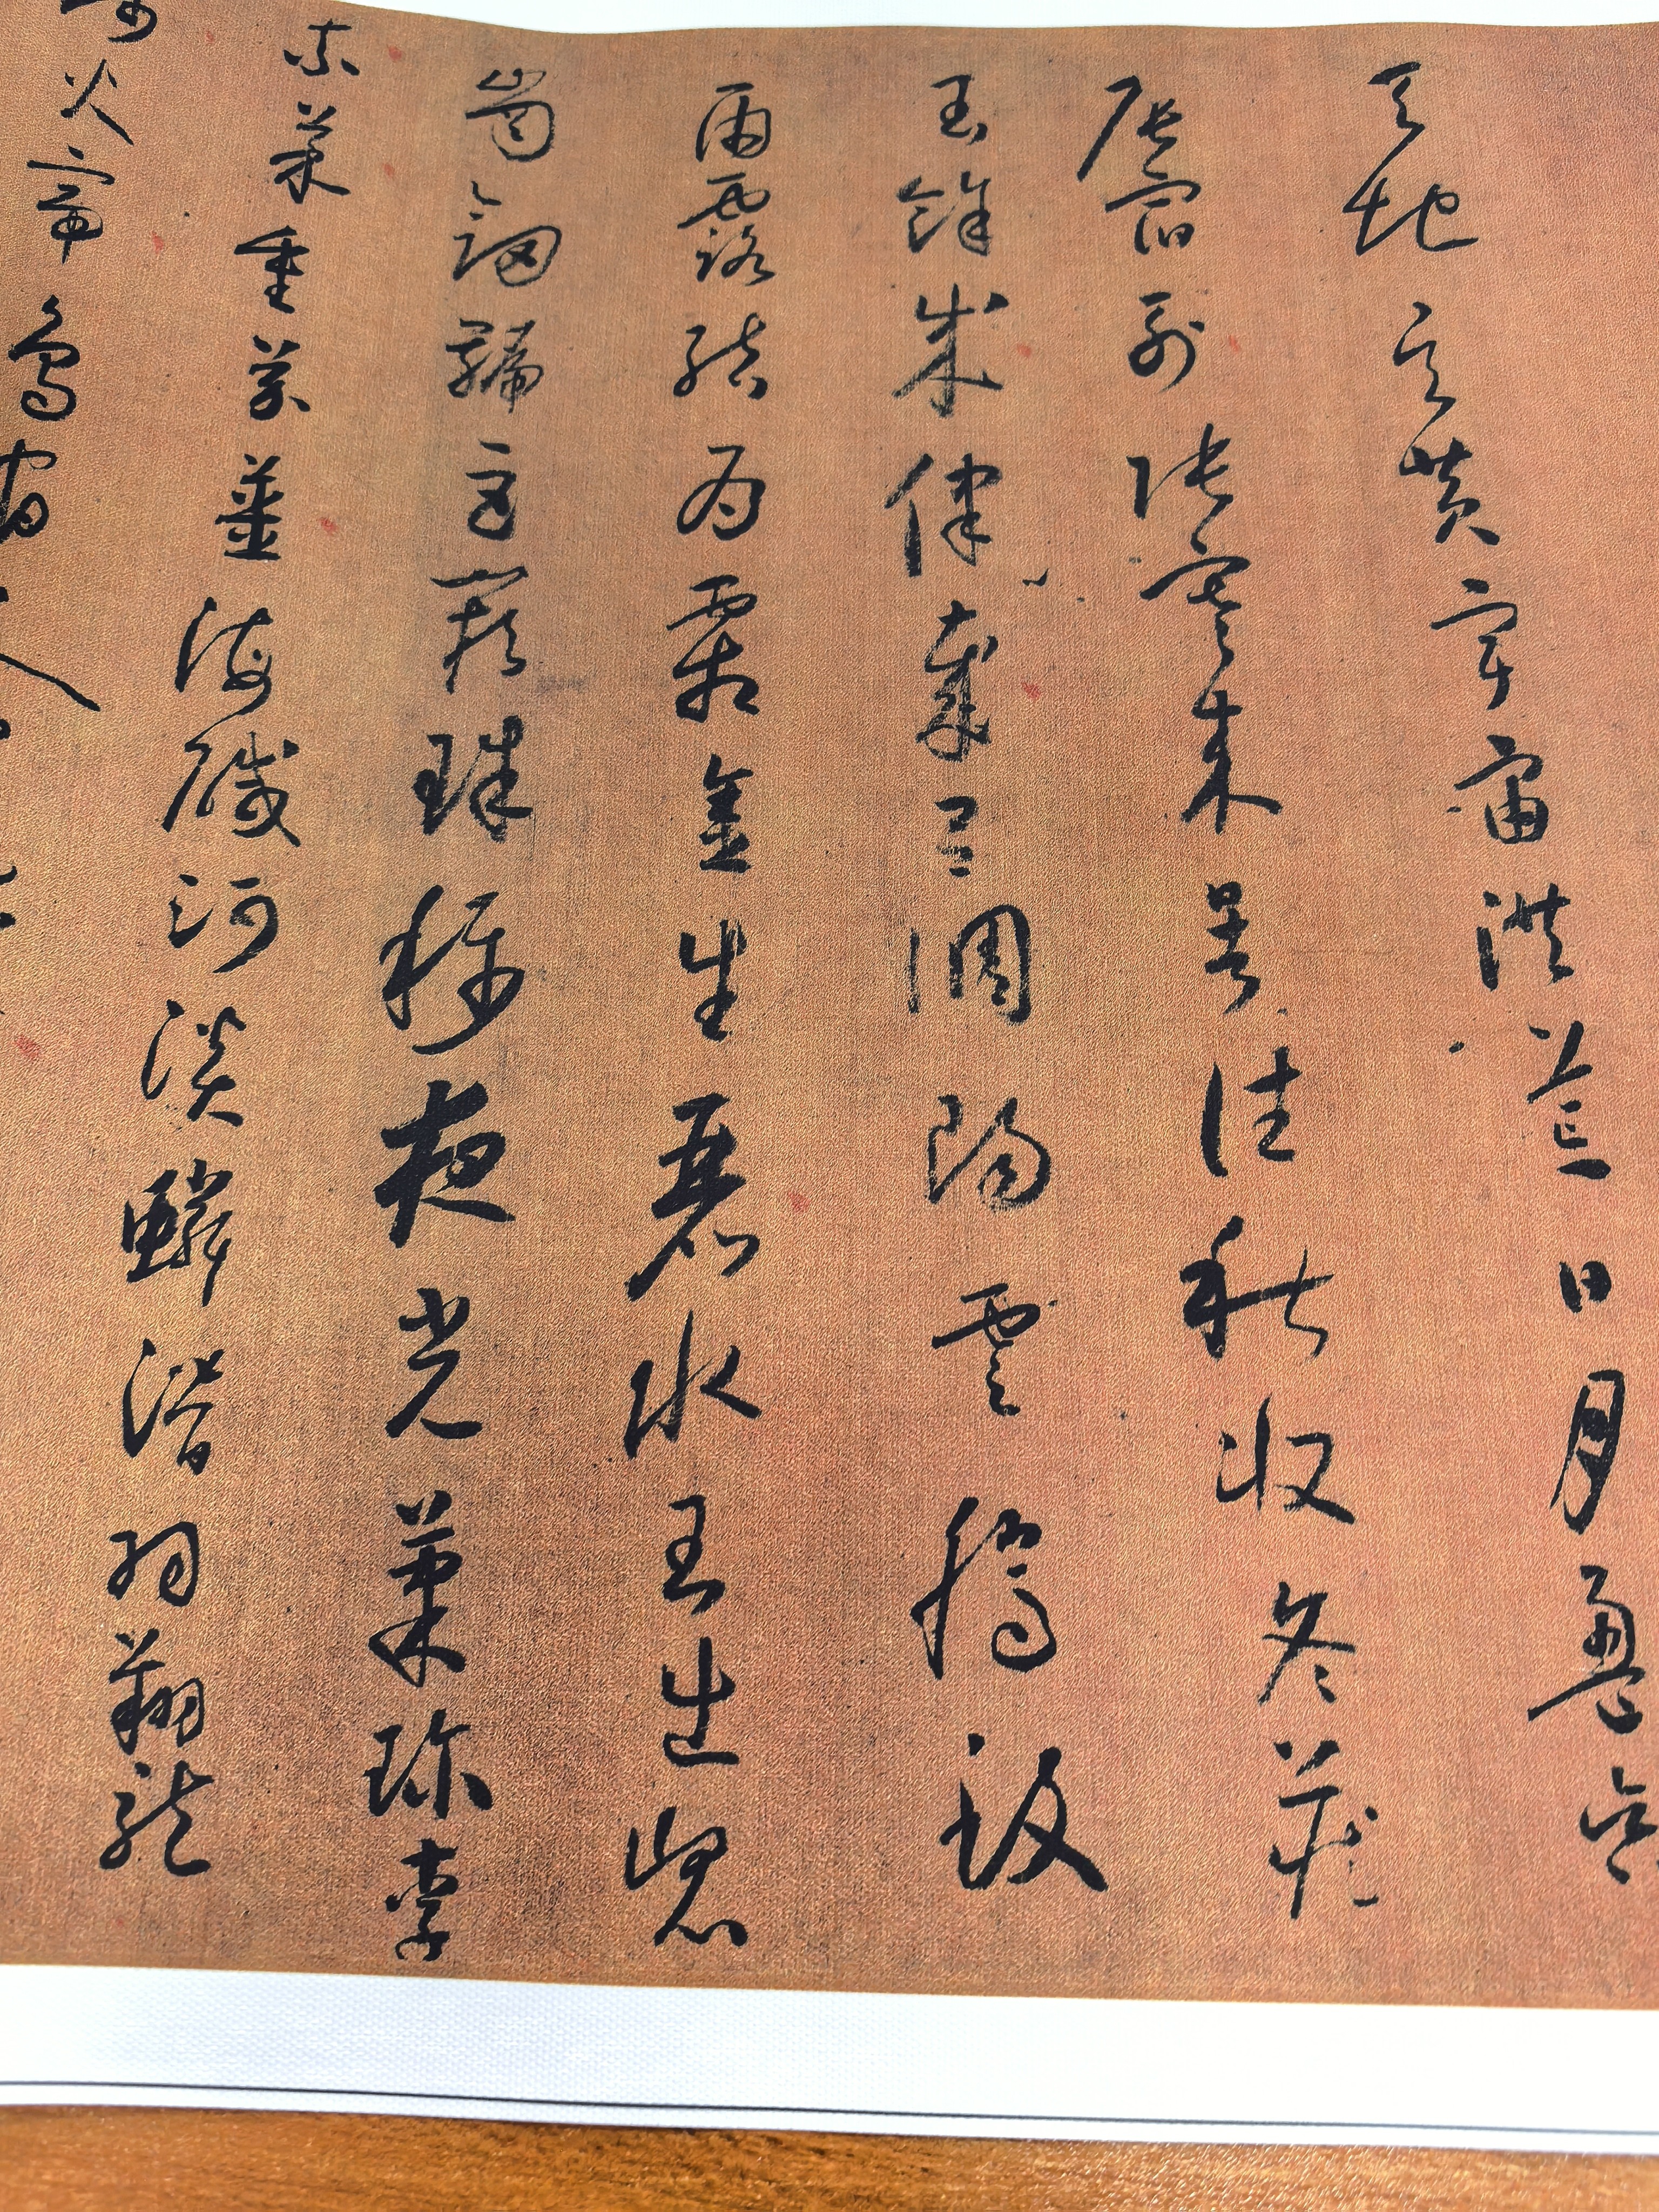 天地玄黄宇宙洪荒日月盈昃
辰宿列張寒来暑往秋收冬藏
閏餘成律歲呂調陽雲騰致
雨露結為霜金生麗水玉出崐
崗劒號巨闕珠稱夜光菓珎李
柰菜重芥薑海醎河淡鱗潛羽翔龍
師火帝鳥官人